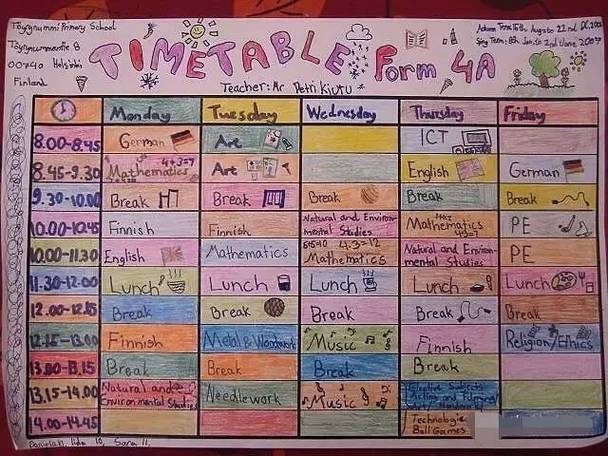 Töyrynummi Primary School
Töyrynummentie 8
00740 Helsinki
Finland
TIMETABLE Form 4A
Teacher: Mr Petri
Autumn Term: to 22nd
Spring Term: 8th Jan. to 2nd June, 2007
Monday Tuesday Wednesday Thursday Friday
8.00-8.45 German Art ICT
8.45-9.30 Mathematics 4+3=7 Art English German
9.30-10.00 Break Break Break Break Break
10.00-10.45 Finnish Finnish Natural and Environ- Mathematics PE
mental Studies
10.00-11.30 English Mathematics Mathematics 4.3=12 Natural and Environ- PE
mental Studies
11.30-12.00 Lunch Lunch Lunch Lunch Lunch
12.00-12.15 Break Break Break Break Break
12.15-13.00 Finnish Metal & Woodwork Music Finnish Religion/Ethics
13.00-13.15 Break Break Break Break
13.15-14.00 Natural and Needlework Music Elective Subjects
Environmental Studies Acting and
14.00-14.45 Technologie
Ball Games
Iida 10, Sara 11.